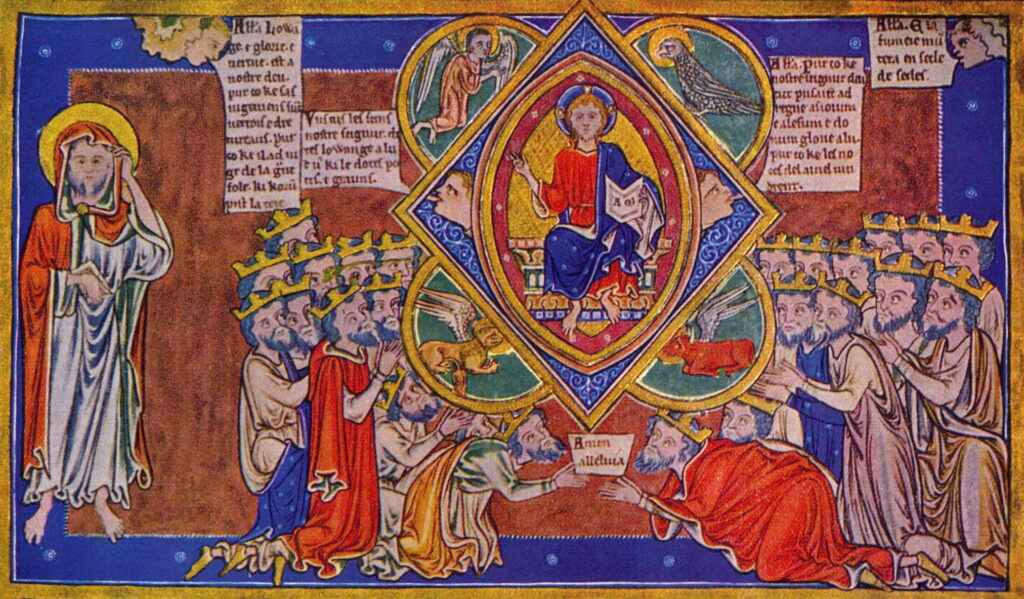 Alla. Lowa
ge. e glorie. e
uertue. est a
nostre deu.
pur co ke sas
iugemenz sunt
uerrois e dre
turaus. Pur
co ke il ad iu
ge de la
fole. ki koru
pist la tere
Vus tus les sens
nostre seignur. di
tes lowange a lu
e ki le dotes. pe
tis. e granz.
A ω
Alla. Pur co ke
nostre seignur deu
tut pusant ad
regne. asioium
e alesum e do
num glorie a lu
pur co ke les no
ces del ainel uin
drent.
Alla. E la
fumeie mu
tera en secle
de secles.
Amen
alleluia